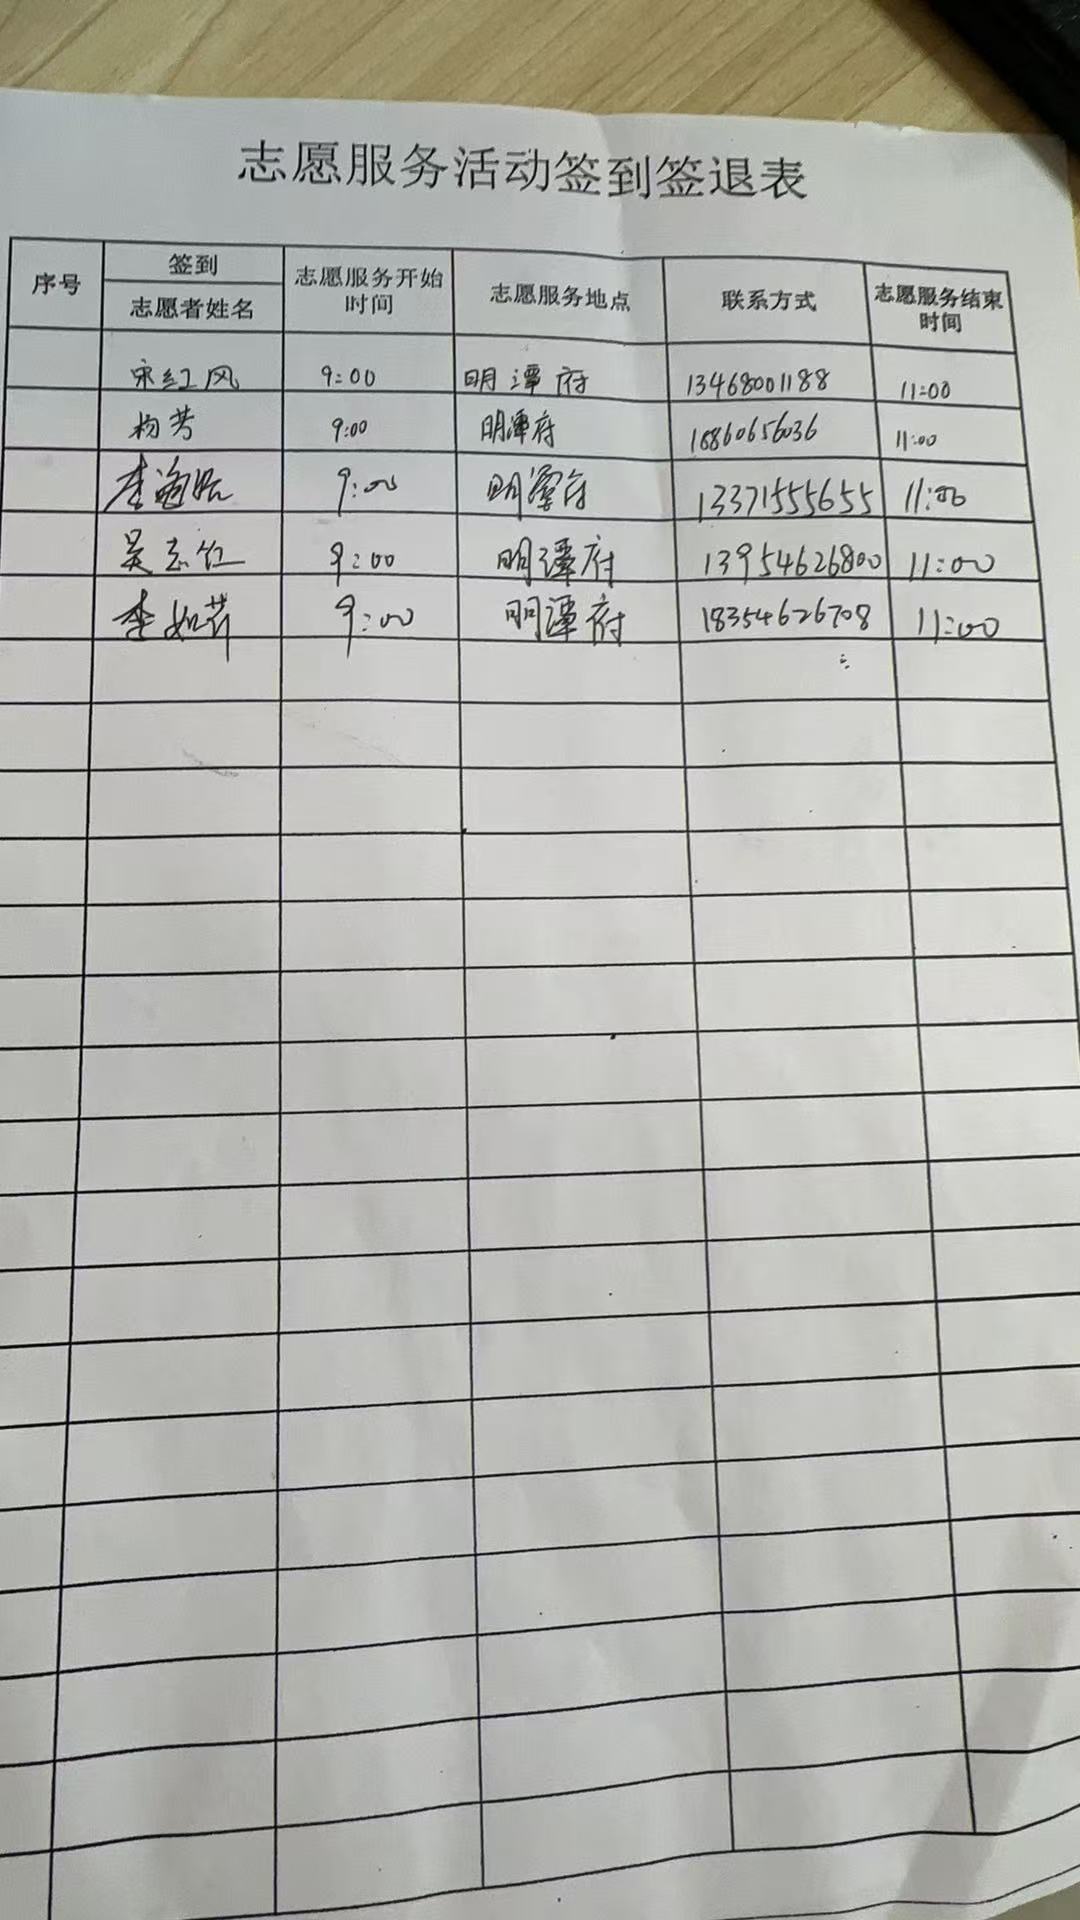 志愿服务活动签到签退表
序号 签到 志愿者姓名 志愿服务开始时间 志愿服务地点 联系方式 志愿服务结束时间
宋红风 9:00 明潭府 13468001188 11:00
杨芳 9:00 明潭府 18860656036 11:00
李海 9:00 明潭府 13371555655 11:00
吴志红 9:00 明潭府 13954626800 11:00
李如芹 9:00 明潭府 18354626708 11:00